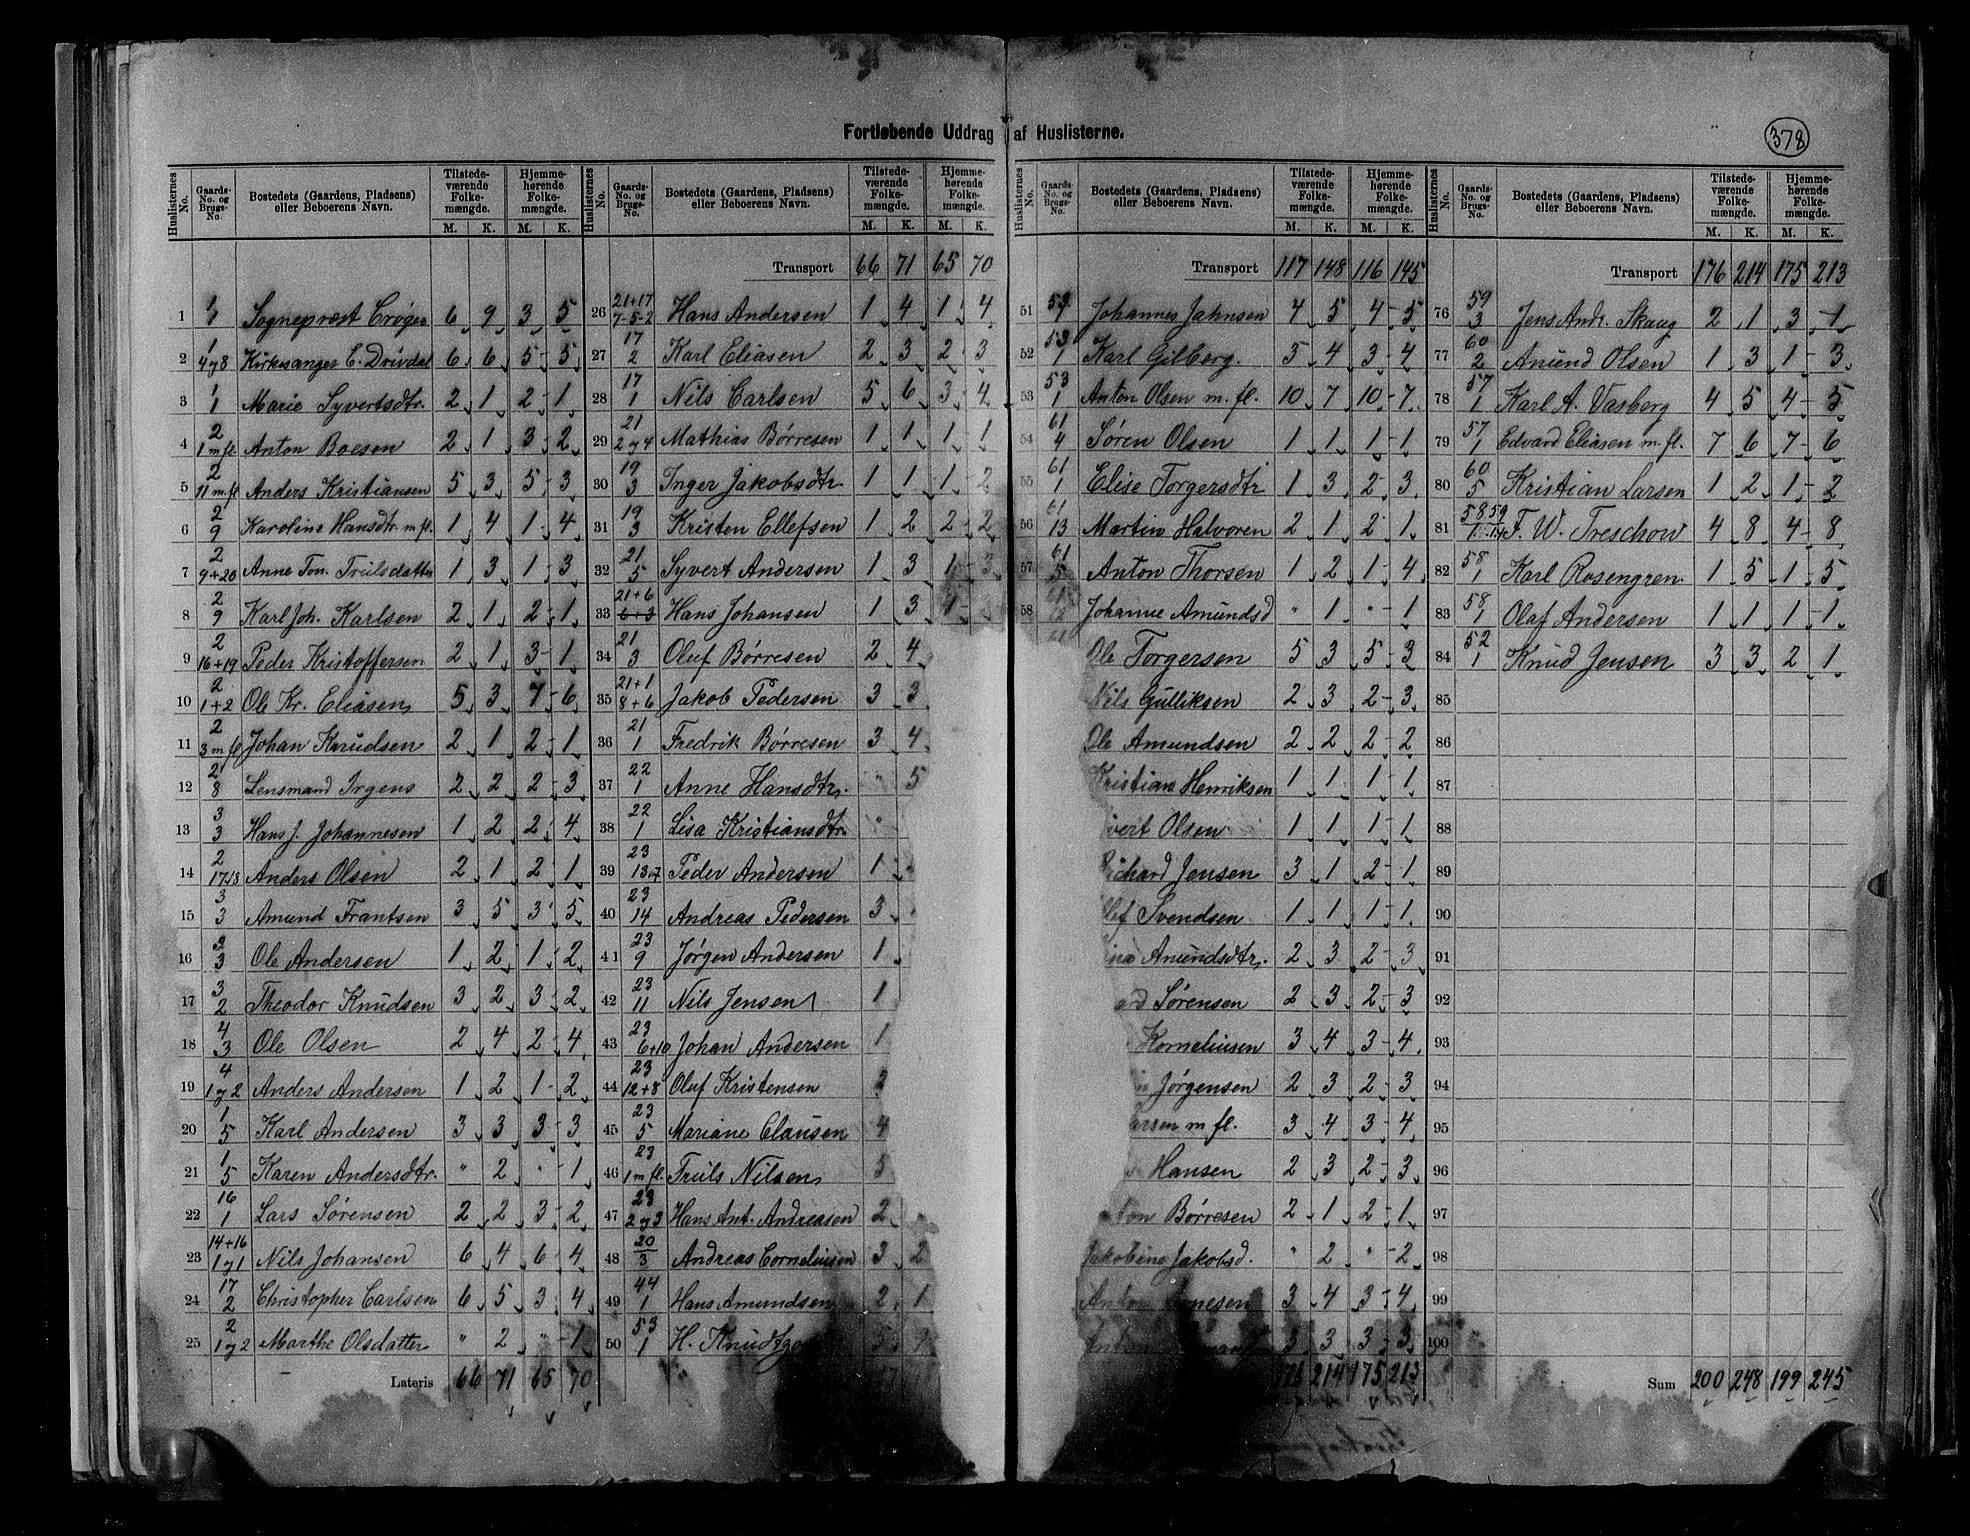 Fortløbende Uddrag af Huslisterne.
378
Huslisternes No. Gaards-No. og Brugs-No. Bostedets (Gaardens, Pladsens) eller Beboerens Navn. Tilstedeværende Folkemængde. Hjemmehørende Folkemængde. M. K. M. K.
1 1/1 Sognepræst Crøger 6 9 3 5
2 1/4 og 8 Kirkesanger E. Drivdal 6 6 5 5
3 1/1 Marie Syvertsdtr. 2 1 2 1
4 2/1 m fl. Anton Boesen 2 1 3 2
5 2/11 m. fl Anders Kristiansen 5 3 5 3
6 2/9 Karoline Hansdtr m fl. 1 4 1 4
7 2/9+20 Anne Ton. Trulsdatter 1 3 1 3
8 2/9 Karl Joh. Karlsen 2 1 2 1
9 2/16+19 Peder Kristoffersen 2 1 3 1
10 2/1+2 Ole Kr. Eliasen 5 3 7 6
11 2/3 m fl Johan Knudsen 2 1 2 1
12 2/8 Lensmand Irgens 2 2 2 3
13 3/3 Hans J. Johannesen 1 2 2 4
14 2/17+18 Anders Olsen 2 1 2 1
15 3/3 Amund Frantsen 3 5 3 5
16 3/3 Ole Andersen 1 2 1 2
17 3/2 Theodor Knudsen 3 2 3 2
18 4/3 Ole Olsen 2 4 2 4
19 4/1 og 2 Anders Andersen 1 2 1 2
20 1/5 Karl Andersen 3 3 3 3
21 1/5 Karen Andersdtr. " 2 " 1
22 16/1 Lars Sørensen 2 2 3 2
23 14+16/1 og 1 Nils Johansen 6 4 6 4
24 17/2 Christopher Carlsen 6 5 3 4
25 2/1 og 2 Marthe Olsdatter " 2 " 1
Lateris 66 71 65 70
Huslisternes No. Gaards-No. og Brugs-No. Bostedets (Gaardens, Pladsens) eller Beboerens Navn. Tilstedeværende Folkemængde. Hjemmehørende Folkemængde. M. K. M. K.
Transport 66 71 65 70
26 21+17/7-5-2 Hans Andersen 1 4 1 4
27 17/2 Karl Eliasen 2 3 2 3
28 17/1 Nils Carlsen 5 6 3 4
29 21/2 og 4 Mathias Børresen 1 1 1 1
30 19/3 Inger Jakobsdtr. 1 1 1 2
31 19/3 Kristen Ellefsen 1 2 2 2
32 21/5 Syvert Andersen 1 3 1 3
33 21+6/6+3 Hans Johansen 1 3 1 3
34 21/3 Oluf Børresen 2 4
35 21+1/8+6 Jakob Pedersen 3 3
36 21/1 Fredrik Børresen 3 4
37 22/1 Anne Hansdtr. " 5
38 22/1 Lisa Kristiansdtr "
39 23/13 Peder Andersen 1
40 23/14 Andreas Pedersen 3
41 23/9 Jørgen Andersen 1
42 23/11 Nils Jensen 1
43 23/6+10 Johan Andersen 1
44 23/12+8 Oluf Kristensen
45 23/5 Mariane Clausen 4
46 23/1 m fl. Truls Nilsen 5
47 23/2 og 3 Hans Ant. Andreasen 2
48 20/3 Andreas Corneliusen 3 2
49 44/1 Hans Amundsen 2 1
50 53/1 H. Knudtzon
Huslisternes No. Gaards-No. og Brugs-No. Bostedets (Gaardens, Pladsens) eller Beboerens Navn. Tilstedeværende Folkemængde. Hjemmehørende Folkemængde. M. K. M. K.
Transport 117 148 116 145
51 Johannes Jahnsen 4 5 4 5
52 53/1 Karl Gilberg. 5 4 3 4
53 53/1 Anton Olsen m. fl. 10 7 10 7
54 61/4 Søren Olsen 1 1 1 1
55 61/1 Elise Torgersdtr 1 3 2 3
56 61/13 Martin Halvoren 2 1 2 1
57 61/5 Anton Thorsen 1 2 1 4
58 Johanne Amundsd " 1 " 1
Ole Torgersen 5 3 5 3
Nils Gulliksen 2 3 2 3
Ole Amundsen 2 2 2 2
Kristian Henriksen 1 1 1 1
ivert Olsen 1 1 1 1
Richard Jensen 3 1 2 1
llef Svendsen 1 1 1 1
ina Amundsdtr. 2 3 2 3
ard Sørensen 2 3 2 3
Korneliusen 3 4 3 4
Jørgensen 2 3 2 3
arsen m fl. 3 4 3 4
Hansen 2 3 2 3
ton Børresen 2 1 2 1
Jakobine Jakobsd. " 2 " 2
Anton 3 4 3 4
Anton 3 3 3 3
176 214 175 213
Huslisternes No. Gaards-No. og Brugs-No. Bostedets (Gaardens, Pladsens) eller Beboerens Navn. Tilstedeværende Folkemængde. Hjemmehørende Folkemængde. M. K. M. K.
Transport 176 214 175 213
76 59/3 Jens Andr. Skaug 2 1 3 1
77 60/2 Amund Olsen 1 3 1 3
78 57/1 Karl A. Vasberg 4 5 4 5
79 57/1 Edvard Eliasen m. fl. 7 6 7 6
80 60/5 Kristian Larsen 1 2 1 2
81 58 59 F. W. Treschow 4 8 4 8
82 58/1 Karl Rosengren 1 5 1 5
83 58/1 Olaf Andersen 1 1 1 1
84 52/1 Knud Jensen 3 3 2 1
85
86
87
88
89
90
91
92
93
94
95
96
97
98
99
100
Sum 200 248 199 245